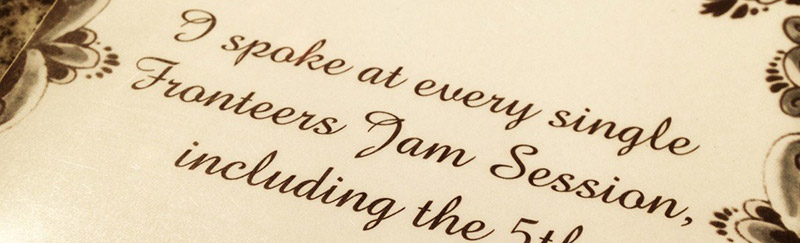 I spoke at every single
Fronteers Jam Session,
including the 5th